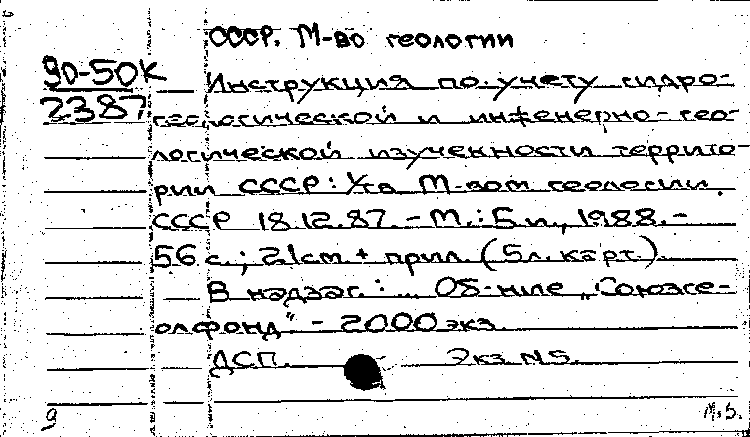 СССР. М-во геологии
90-50К
2387
Инструкция по учету гидро-
геологической и инженерно-гео-
логической изученности террито-
рии СССР: Утв М-вом геологии
СССР 18.12.87. - М.: Б.и., 1988. -
56 с.; 21см + прил. (5л. карт.).
В надзаг.: ... Об-ние „Союзге-
олфонд" - 2000 экз.
ДСП. Экз N5.
9
М.Б.